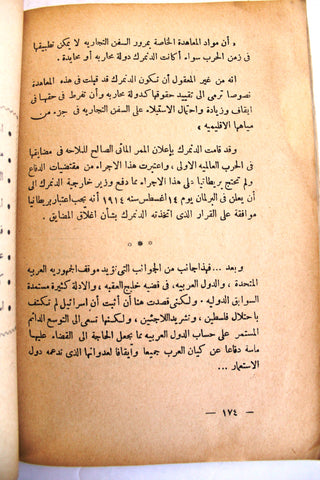 « أن مواد المعاهدة الخاصة بمرور السفن التجاريه لا يمكن تطبيقها
فى زمن الحرب سواء أكانت الدنمرك دولة محاربه أو محايدة .
انه من غير المعقول أن تكون الدنمرك قد قبلت فى هذه المعاهدة
نصوصا ترمى الى تقييد حقوقها كدولة محاربه وأن تفرط فى حقها فى
ايقاف وزيادة واحتمال الاستيلاء على السفن التجاريه فى جزء من
مياهها الاقليميه »
وقد قامت الدنمرك بإعلان الممر المائى الصالح للملاحه فى مضايقها
فى الحرب العالميه الاولى ، واعتبرت هذا الاجراء من مقتضيات الدفاع
ولم تحتج بريطانيا على هذا الاجراء مما دفع وزير خارجية الدنمرك الى
أن يعلن فى البرلمان يوم ١٤ أغسطس سنه ١٩١٤ انه يجب اعتبار بريطانيا
موافقة على القرار الذى اتخذته الدنمرك بشأن اغلاق المضايق .
وبعد ... فهذا جانب من الجوانب التى تؤيد موقف الجمهوريه العربيه
المتحدة ، والدول العربيه ، فى قضية خليج العقبه ، والادلة كثيرة مستمدة من
السوابق الدوليه . ولكنى قصدت هنا أن أثبت أن إسرائيل لم تكتف
باحتلال فلسطين ، وتشريد اللاجئين ، ولكنها تسعى الى التوسع الدائم
المستمر على حساب الدول العربيه مما يجعل الحاجة الى القضاء عليها
ماسة دفاعا عن كيان العرب جميعا وأيقافا لعدوانها الذى تدعمه دول
الاستعمار ...
— ١٧٤ —